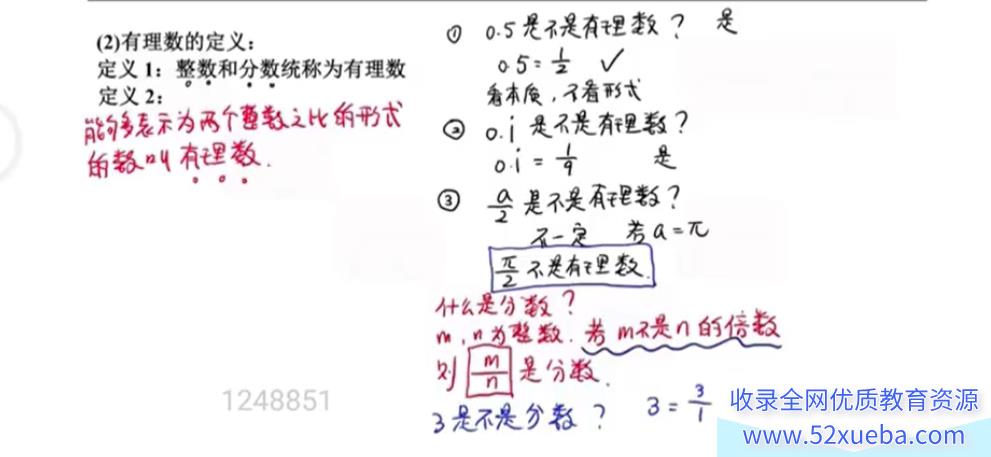 (2)有理数的定义：
定义 1：整数和分数统称为有理数
定义 2：
能够表示为两个整数之比的形式
的数叫有理数.
① 0.5是不是有理数? 是
0.5=1/2 ✓
看本质，不看形式
② 0.i 是不是有理数?
0.i = 1/9 是
③ a/2 是不是有理数?
不一定 若a=π
π/2 不是有理数.
什么是分数?
m,n为整数. 若m不是n的倍数
则 m/n 是分数.
3是不是分数? 3=3/1
1248851
收录全网优质教育资源
www.52xueba.com